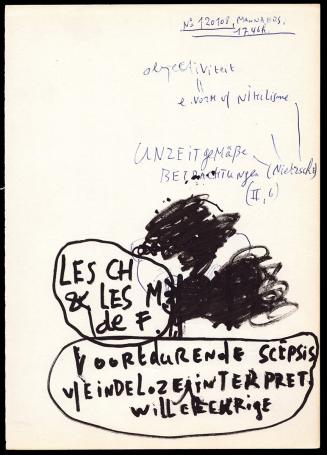 Nº 120108, MANNAERS.
17.46h.
objectiviteit
=
e. vorm v/ Nihilisme
UNZEITgEMÄßE
BETRACHTUNGEN (Nietzsche)
(II, 6)
LES CH
& LES M
de F
VOORTDURENDE SCEPSIS
v/EINDELOZE INTERPRET
WILLEKEURIGE